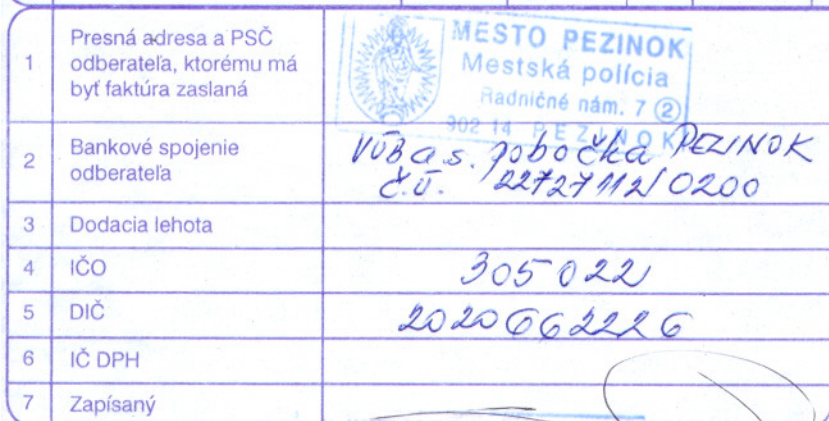 1 Presná adresa a PSČ
odberateľa, ktorému má
byť faktúra zaslaná
MESTO PEZINOK
Mestská polícia
Radničné nám. 7 2
902 14 PEZINOK
2 Bankové spojenie
odberateľa
VÚB a.s. pobočka PEZINOK
č.ú. 22727112/0200
3 Dodacia lehota
4 IČO 305 022
5 DIČ 2020662226
6 IČ DPH
7 Zapísaný